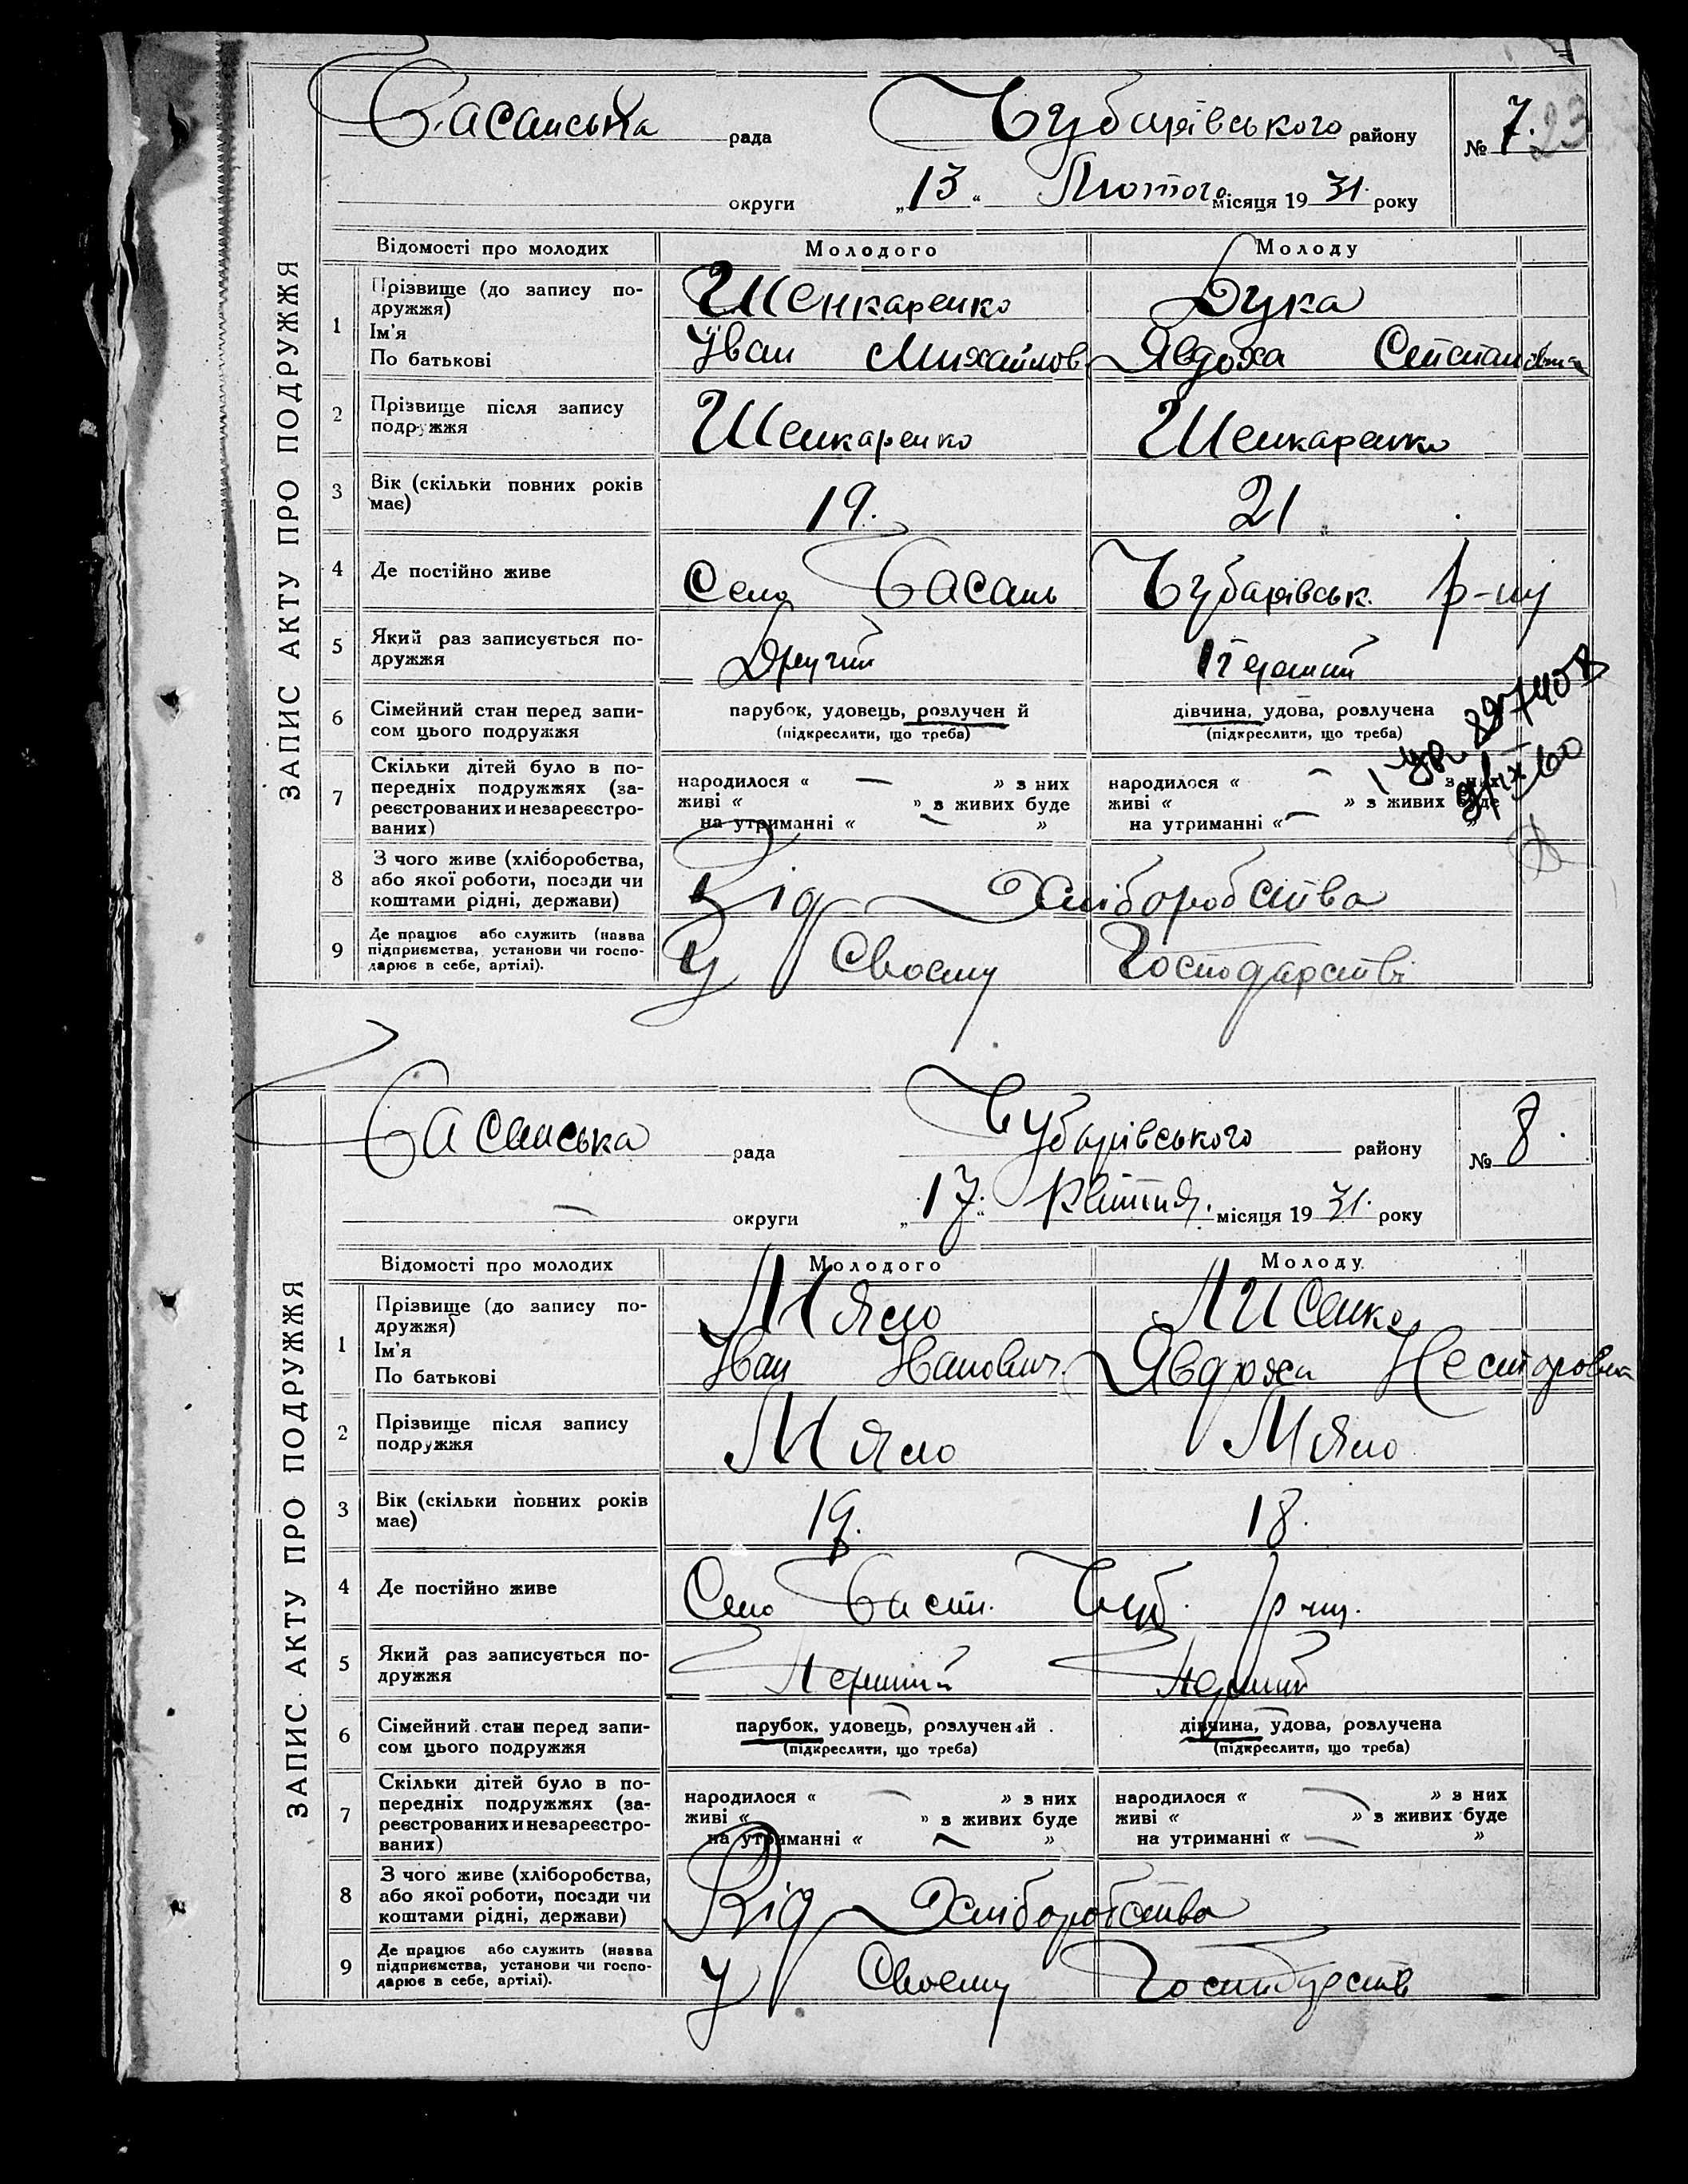 Басанська рада Чубарівського району № 7. 23
округи „13“ Лютого місяця 1931. року
ЗАПИС АКТУ ПРО ПОДРУЖЖЯ
Відомості про молодих Молодого Молоду
1 Прізвище (до запису по-
дружжя) Шенкаренко Бука
Ім'я
По батькові Іван Михайлов Явдоха Степановна
2 Прізвище після запису
подружжя Шенкаренко Шенкаренко
3 Вік (скільки повних років
має) 19. 21
4 Де постійно живе Село Басань Чубарівськ. р-ну
5 Який раз записується по-
дружжя Другий Перший
6 Сімейний стан перед запи- парубок, удовець, розлучен й дівчина, удова, розлучена
сом цього подружжя (підкреслити, що треба) (підкреслити, що треба)
7 Скільки дітей було в по-
передніх подружжях (за-
реєстрованих и незареєстро-
ваних)
народилося « — » з них народилося « — з них
живі « » з живих буде живі « » з живих буде
на утриманні « — » на утриманні « — »
8 З чого живе (хліборобства,
або якої роботи, посади чи
коштами рідні, держави) Від Хліборобства
9 Де працює або служить (назва
підприємства, установи чи госпо-
дарює в себе, артілі). У Своєму Господарстві
Басанська рада Чубарівського району № 8.
— округи „17.“ Квітня. місяця 1931. року
ЗАПИС АКТУ ПРО ПОДРУЖЖЯ
Відомості про молодих Молодого Молоду
1 Прізвище (до запису по-
дружжя) Мяло Лисенко
Ім'я
По батькові Іван Іванович. Явдоха Несторовна
2 Прізвище після запису
подружжя Мяло Мяло
3 Вік (скільки повних років
має) 19. 18.
4 Де постійно живе Село Басань. Чуб. р-ну.
5 Який раз записується по-
дружжя Перший Перший
6 Сімейний стан перед запи- парубок, удовець, розлучений дівчина, удова, розлучена
сом цього подружжя (підкреслити, що треба) (підкреслити, що треба)
7 Скільки дітей було в по-
передніх подружжях (за-
реєстрованих и незареєстро-
ваних)
народилося « — » з них народилося « — » з них
живі « » з живих буде живі « » з живих буде
на утриманні « — » на утриманні « — »
8 З чого живе (хліборобства,
або якої роботи, посади чи
коштами рідні, держави) Від Хліборобства
9 Де працює або служить (назва
підприємства, установи чи госпо-
дарює в себе, артілі). У Своєму Господарств